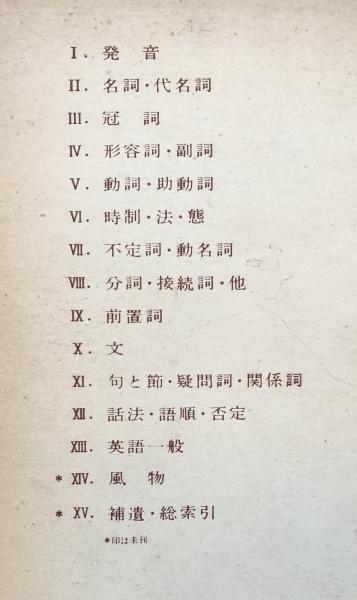 I. 発音
II. 名詞・代名詞
III. 冠詞
IV. 形容詞・副詞
V. 動詞・助動詞
VI. 時制・法・態
VII. 不定詞・動名詞
VIII. 分詞・接続詞・他
IX. 前置詞
X. 文
XI. 句と節・疑問詞・関係詞
XII. 話法・語順・否定
XIII. 英語一般
* XIV. 風物
* XV. 補遺・総索引
*印は未刊